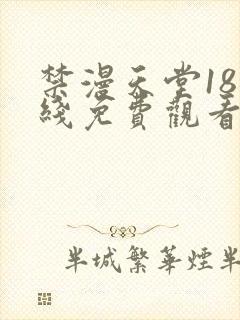 禁漫天堂18
綫免費觀看
半城繁華煙半